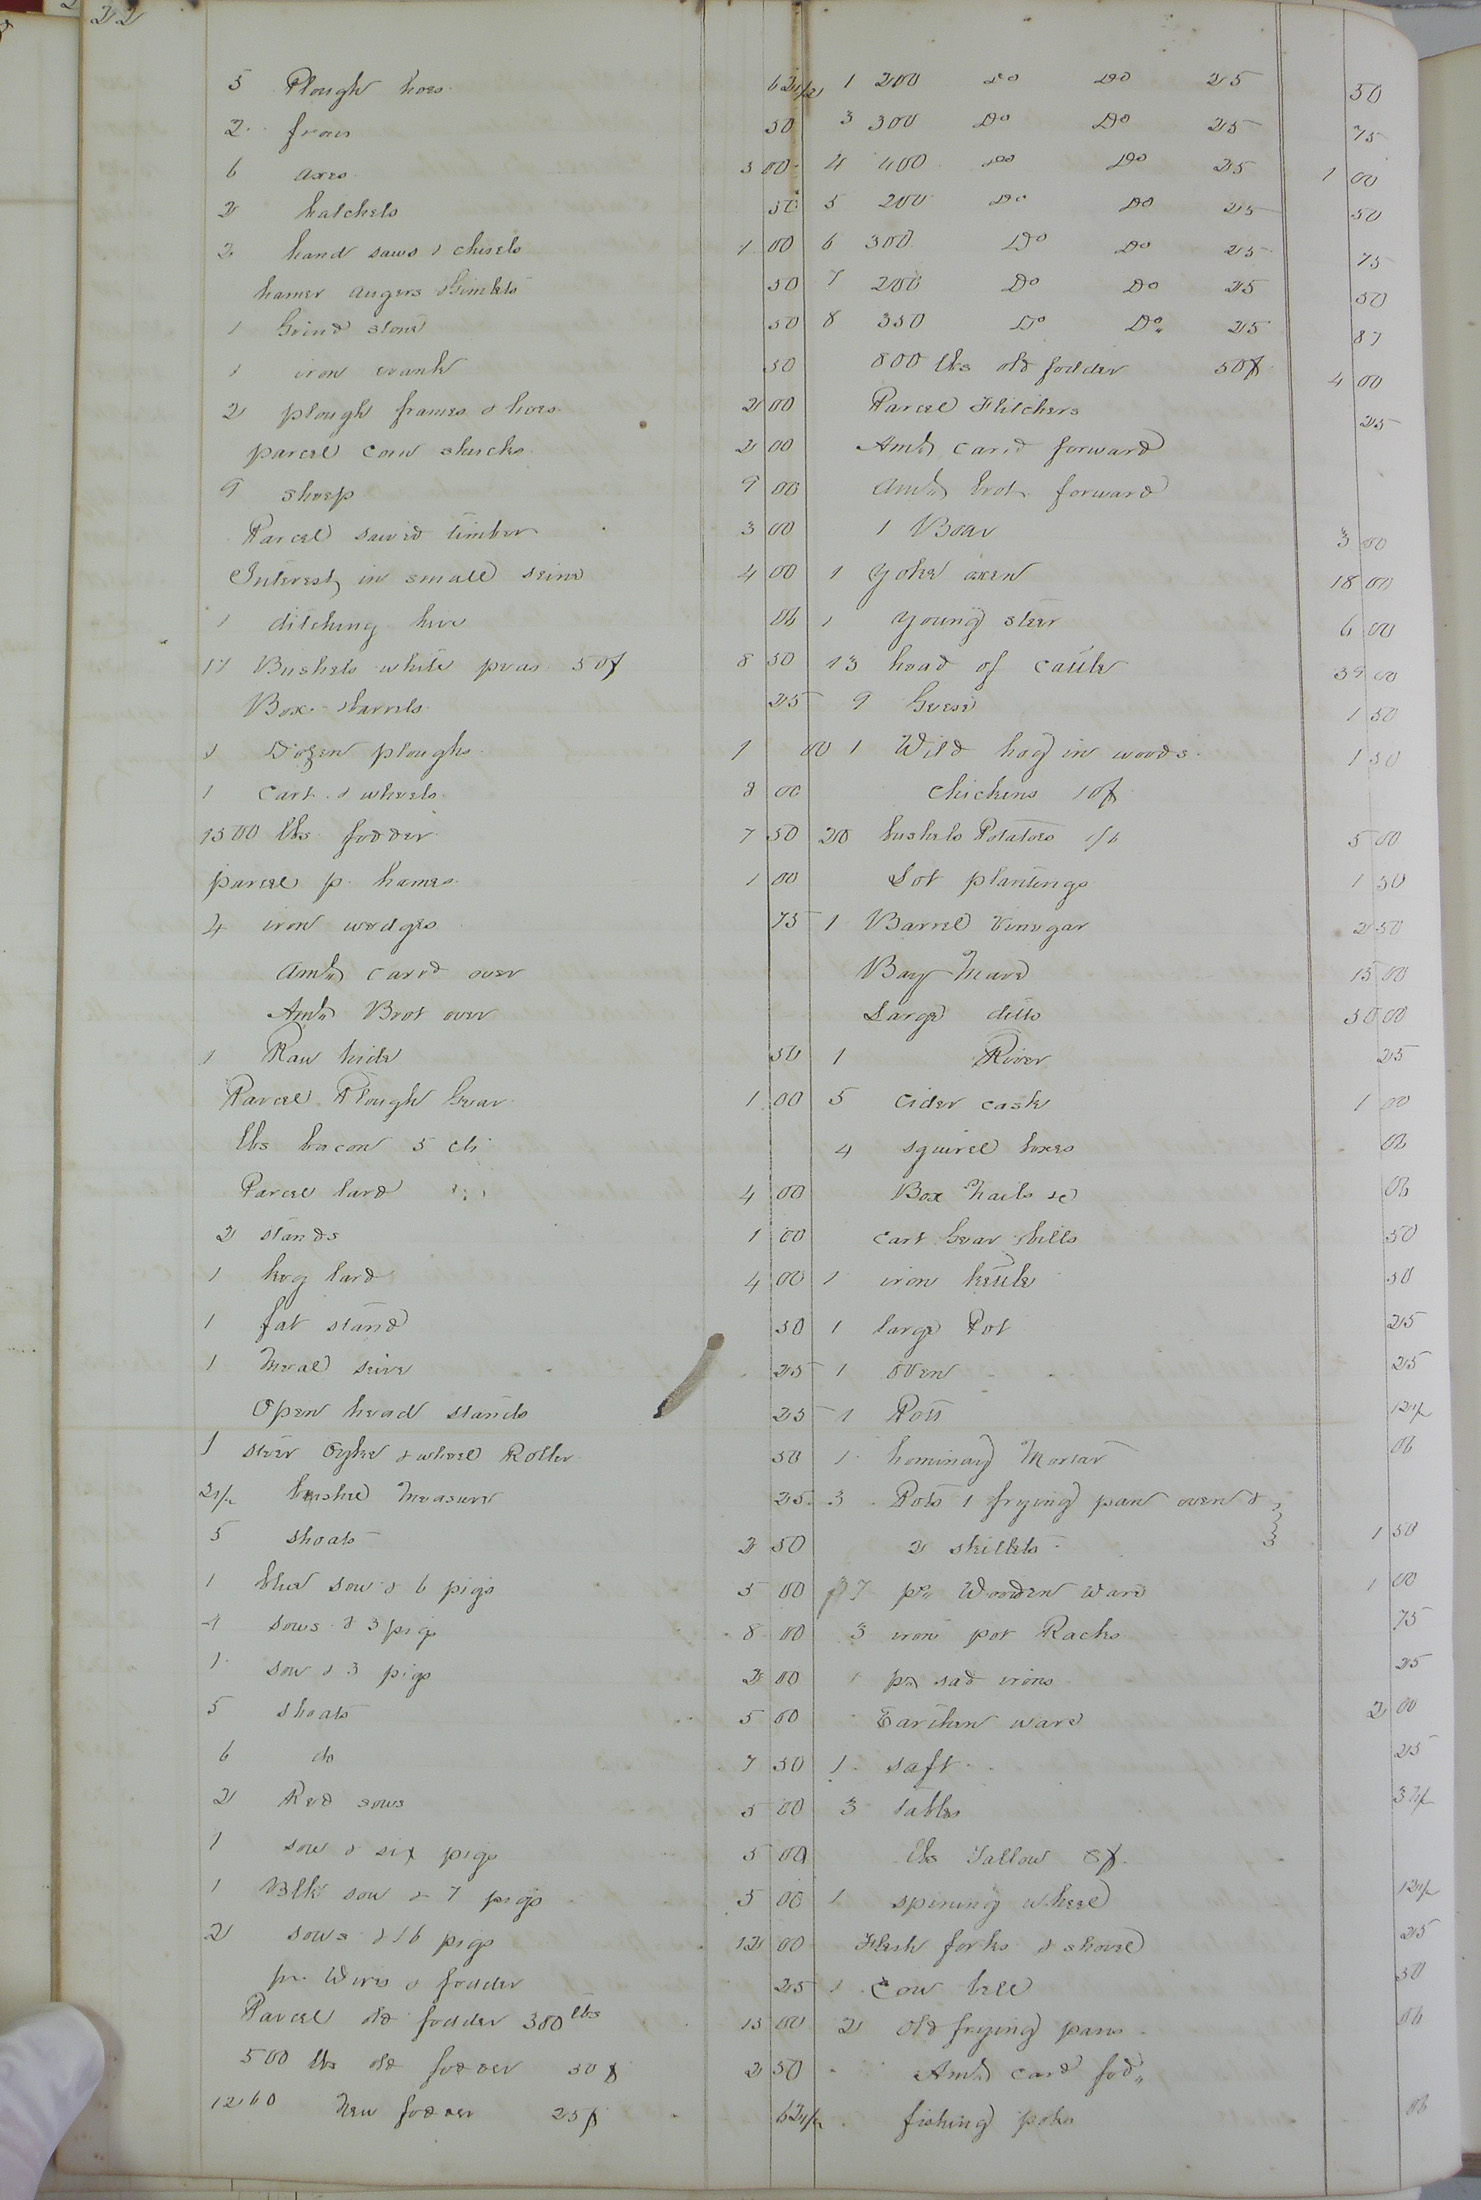 22
5 Plough hoes 62 1/2
2 frows 50
6 axes 3 00
2 hatchets 50
2 hand saws & chisels 1 00
hamer augers & Gimlets 50
1 Grind stone 50
1 iron crank 50
2 plough frames & hoes 2 00
parcel corn shucks 2 00
9 sheep 9 00
Parcel sawed timber 3 00
Interest in small seine 4 00
1 ditching hoe 06
17 Bushels white peas 50¢ 8 50
Box & barrels 25
1 Dozen ploughs 1 00
1 Cart & wheels 8 00
1500 lbs fodder 7 50
parcel p. hames 1 00
4 iron wedges 75
Amt. carrd over
Amt. Brot over
1 Raw hide 50
Parcel Plough Gear 1 00
lbs bacon 5 cts
Parcel lard 4 00
2 stands 1 00
1 keg lard 4 00
1 fat stand 50
1 Meal seive 25
Open head stands 25
1 steer & wheel Roller 50
2 1/2 bushel Measure 25
5 shoats 2 50
1 blue sow & 6 pigs 5 00
4 sows & 3 pigs 8 00
1 sow & 3 pigs 2 00
5 shoats 5 00
6 do 7 50
2 Red sows 5 00
1 sow & six pigs 5 00
1 Blk sow & 7 pigs 5 00
2 sows & 16 pigs 12 00
& fodder 25
Parcel old fodder 300 lbs 15 00
500 lbs old fodder 50¢ 2 50
1260 New fodder 25¢ 62 1/2
1 200 Do Do 25 50
3 300 Do Do 25 75
4 400 Do Do 25 1 00
5 200 Do Do 25 50
6 300 Do Do 25 75
7 200 Do Do 25 50
8 350 Do Do 25 87
800 lbs old fodder 50¢ 4 00
Parcel Flitchers 25
Amt. card forward
Amt. brot. forward
1 Boar 3 00
1 Yoke oxen 18 00
1 young steer 6 00
13 head of cattle 39 00
9 Geese 1 50
1 Wild hog in woods 1 50
chickens 10¢
20 bushels Potatoes 1/6 5 00
Lot plantings 1 50
1 Barrel Vinegar 2 50
Bay Mare 15 00
Large ditto 50 00
1 River 25
5 cider cask 1 00
4 squirel boxes 06
Box Nails &c 06
Cart Gear & bells 50
1 iron kettle 50
1 large Pot 25
1 oven 25
1 Pott 12 1/2
1 hominay Mortar 06
3 Pots 1 frying pan oven &
2 skillets 1 50
7 ps. Wooden ware 1 00
3 iron pot Racks 75
1 pr. sad irons 25
Earthen ware 2 00
1 saft 25
3 tables 37 1/2
lbs Tallow 8¢
1 spining wheel 12 1/2
Flesh forks & shovel 25
1 Cow bell 50
2 old frying pans 06
Amt. card fod.
fishing poles 06